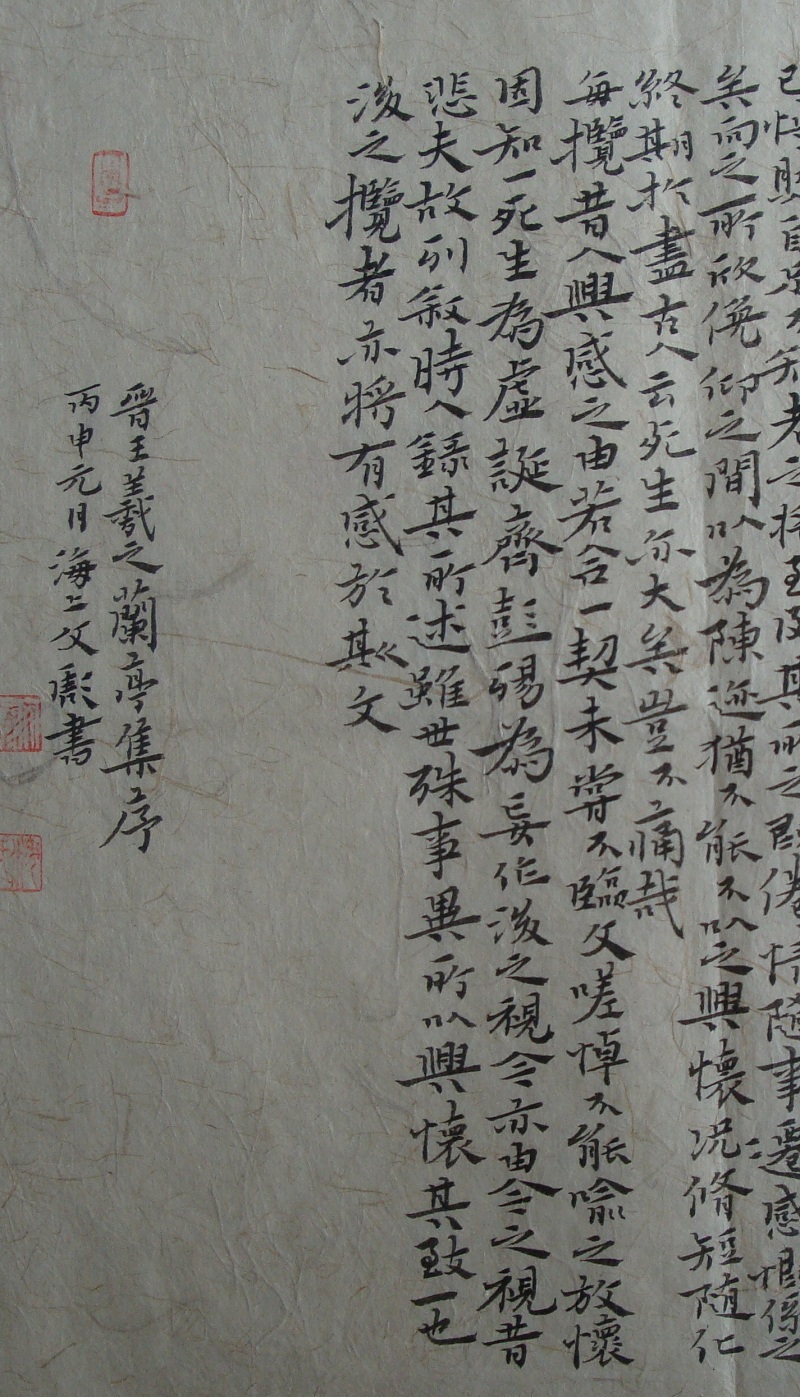 己快然自足不知老之将至及其所之既倦情隨事遷感慨係之
矣向之所欣俛仰之間以為陳迹猶不能不以之興懷況脩短隨化
終期於盡古人云死生亦大矣豈不痛哉
每攬昔人興感之由若合一契未嘗不臨文嗟悼不能喻之於懷
固知一死生為虛誕齊彭殤為妄作後之視今亦由今之視昔
悲夫故列敘時人錄其所述雖世殊事異所以興懷其致一也
後之攬者亦將有感於斯文
晉王羲之蘭亭集序
丙申元月海上文彪書